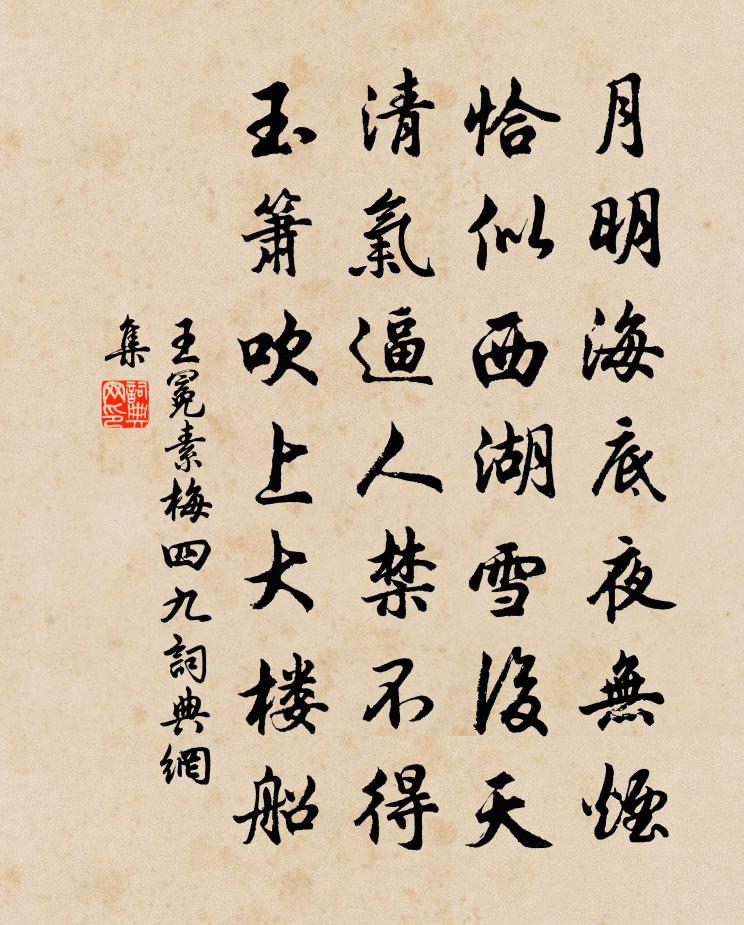 月明海底夜無煙
恰似西湖雪後天
清氣逼人禁不得
玉簫吹上大楼船
王冕素梅四九詞典網
集
詞典网印